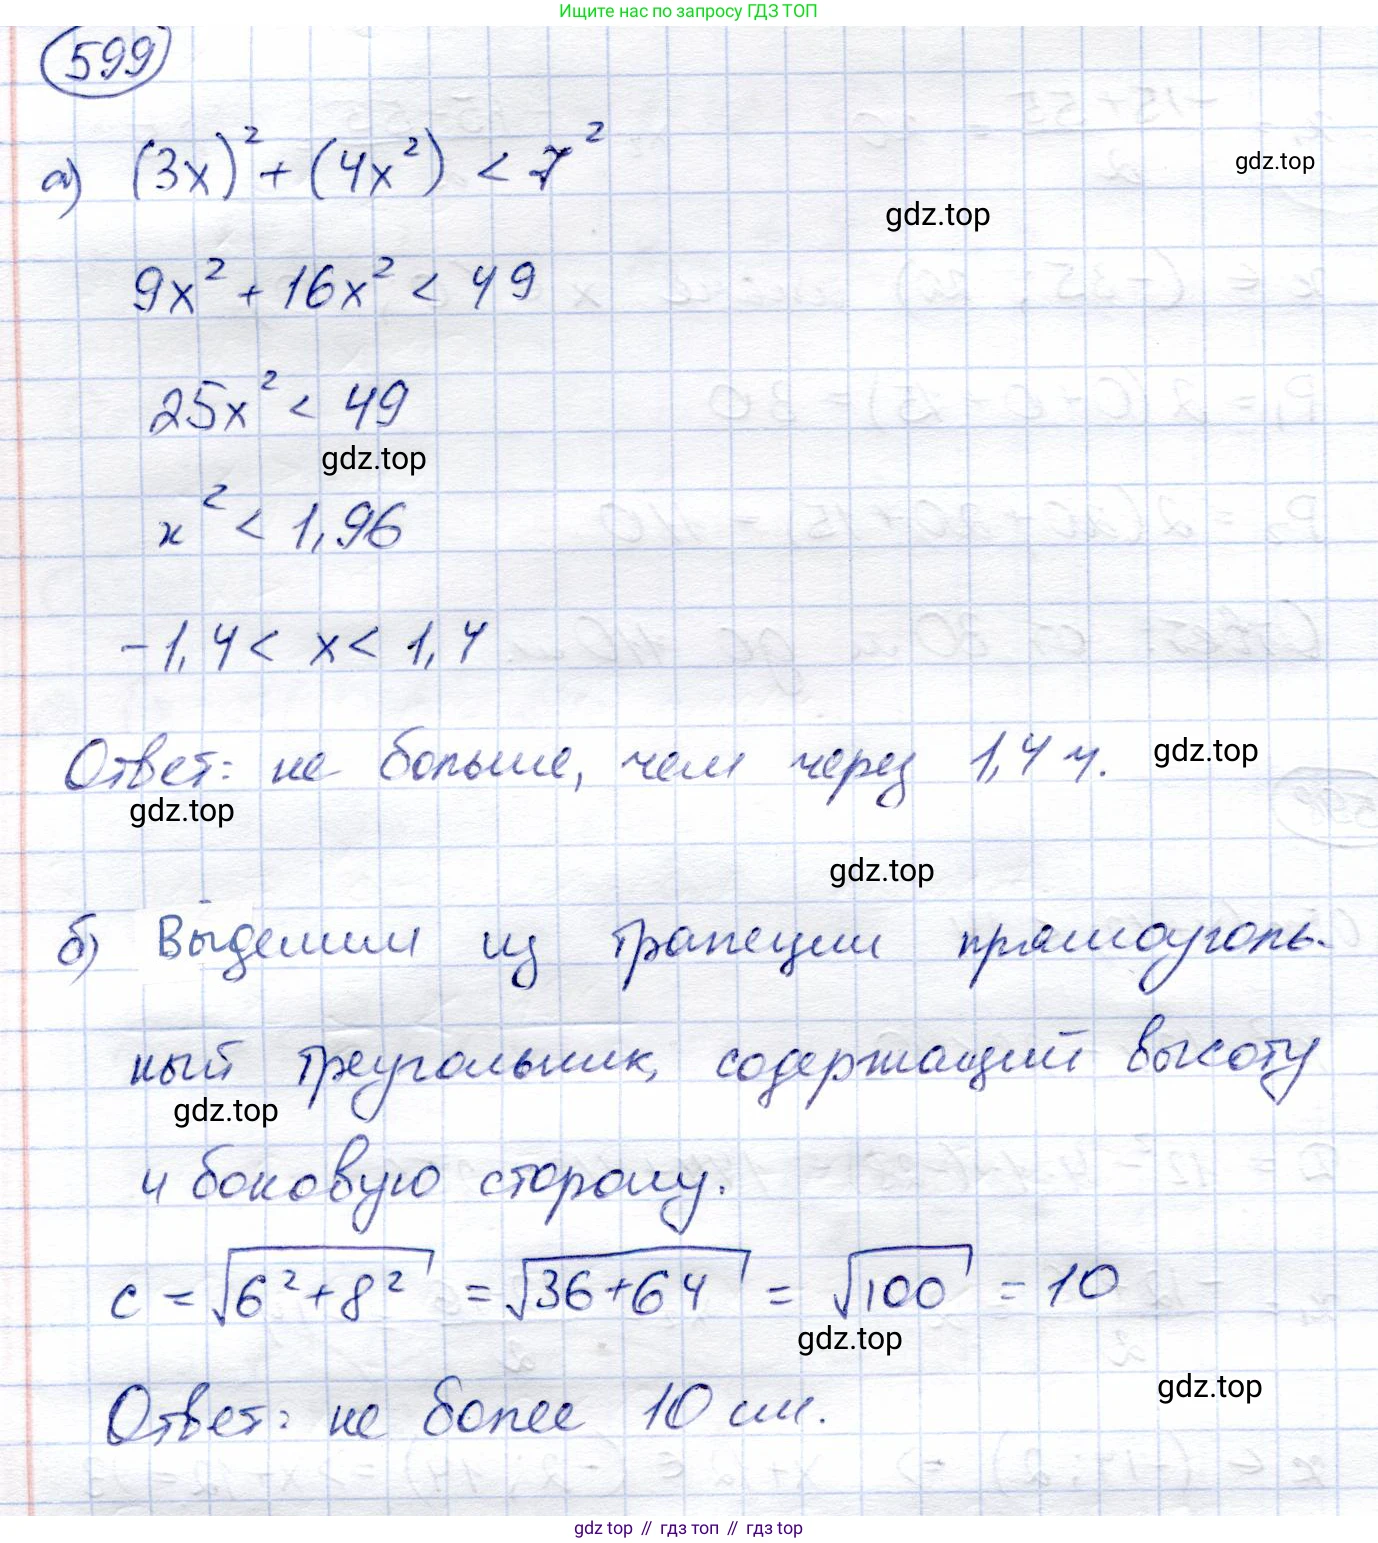 Ищите нас по запросу ГДЗ ТОП
599
а) (3x)² + (4x²) < 7²
gdz.top
gdz.top
9x² + 16x² < 49
25x² < 49
gdz.top
x² < 1,96
-1,4 < x < 1,4
Ответ: не больше, чем через 1,4 ч.
gdz.top
gdz.top
gdz.top
б) Выделим из трапеции прямоуголь-
ный треугольник, содержащий высоту
gdz.top
и боковую сторону.
c = √6²+8² = √36+64 = √100 = 10
gdz.top
gdz.top
Ответ: не более 10 см.
gdz top // гдз топ // gdz top